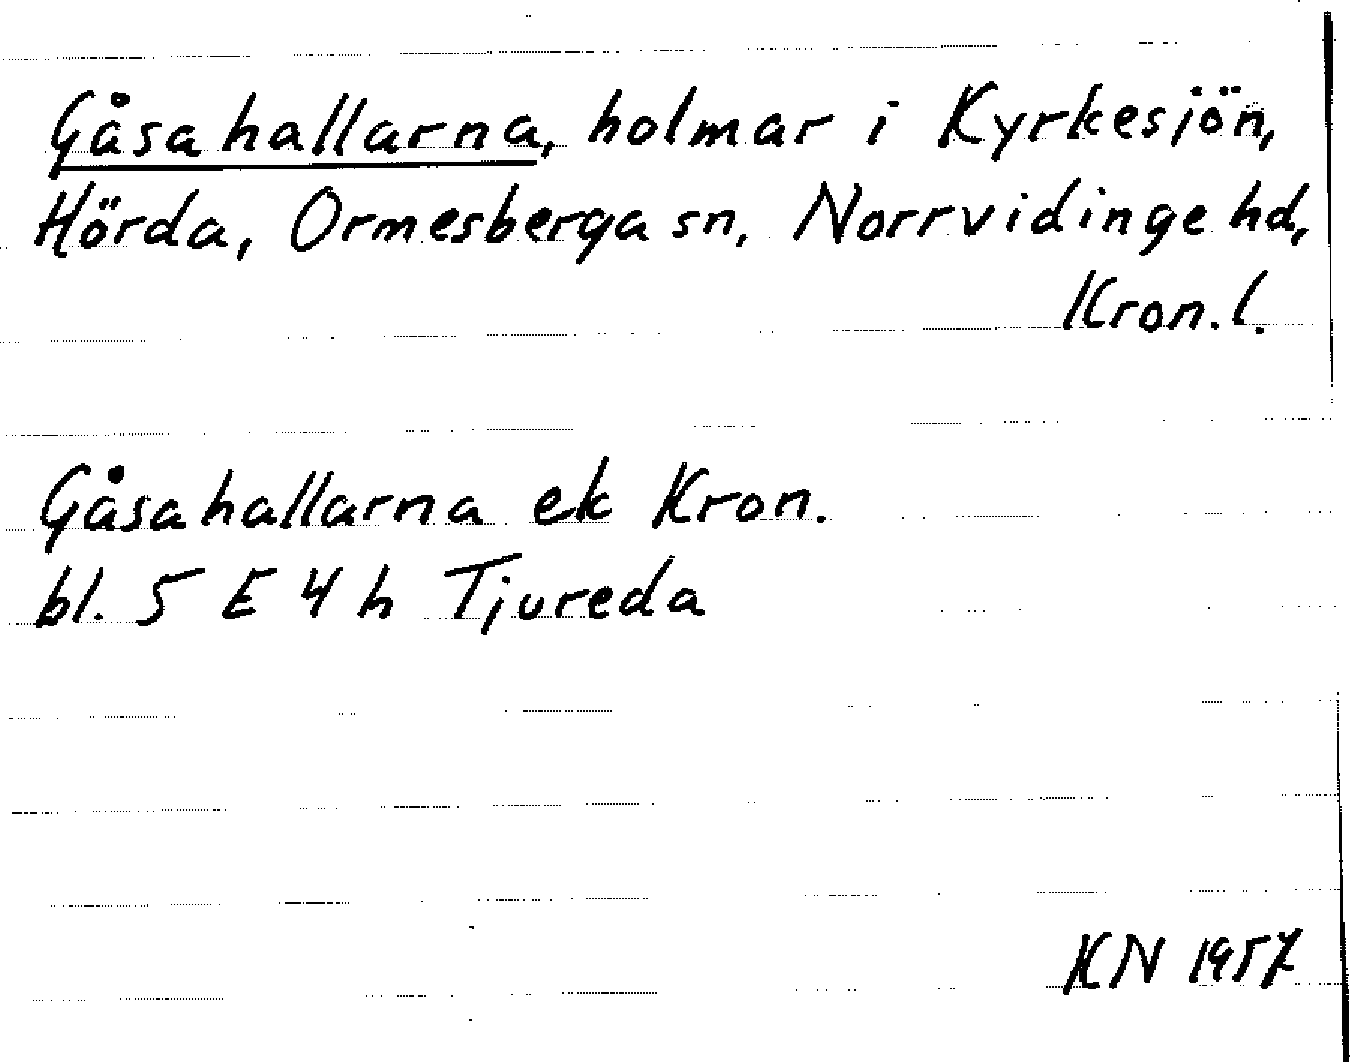 Gåsahallarna, holmar i Kyrkesjön,
Hörda, Ormesberga sn, Norrvidinge hd,
Kron.l.
Gåsahallarna ek Kron.
bl. 5 E 4 h Tjureda
KN 1957